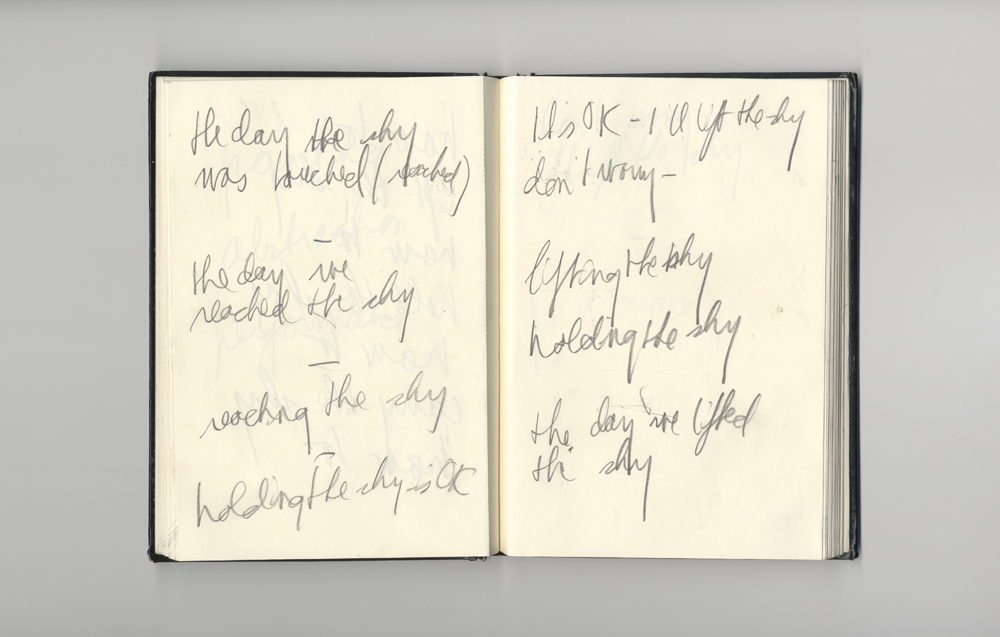 the day the sky
was touched (reached)
—
the day we
reached the sky
—
reaching the sky
—
holding the sky is OK
It's OK - I'll lift the sky
don't worry —
lifting the sky
holding the sky
the day we lifted
the sky